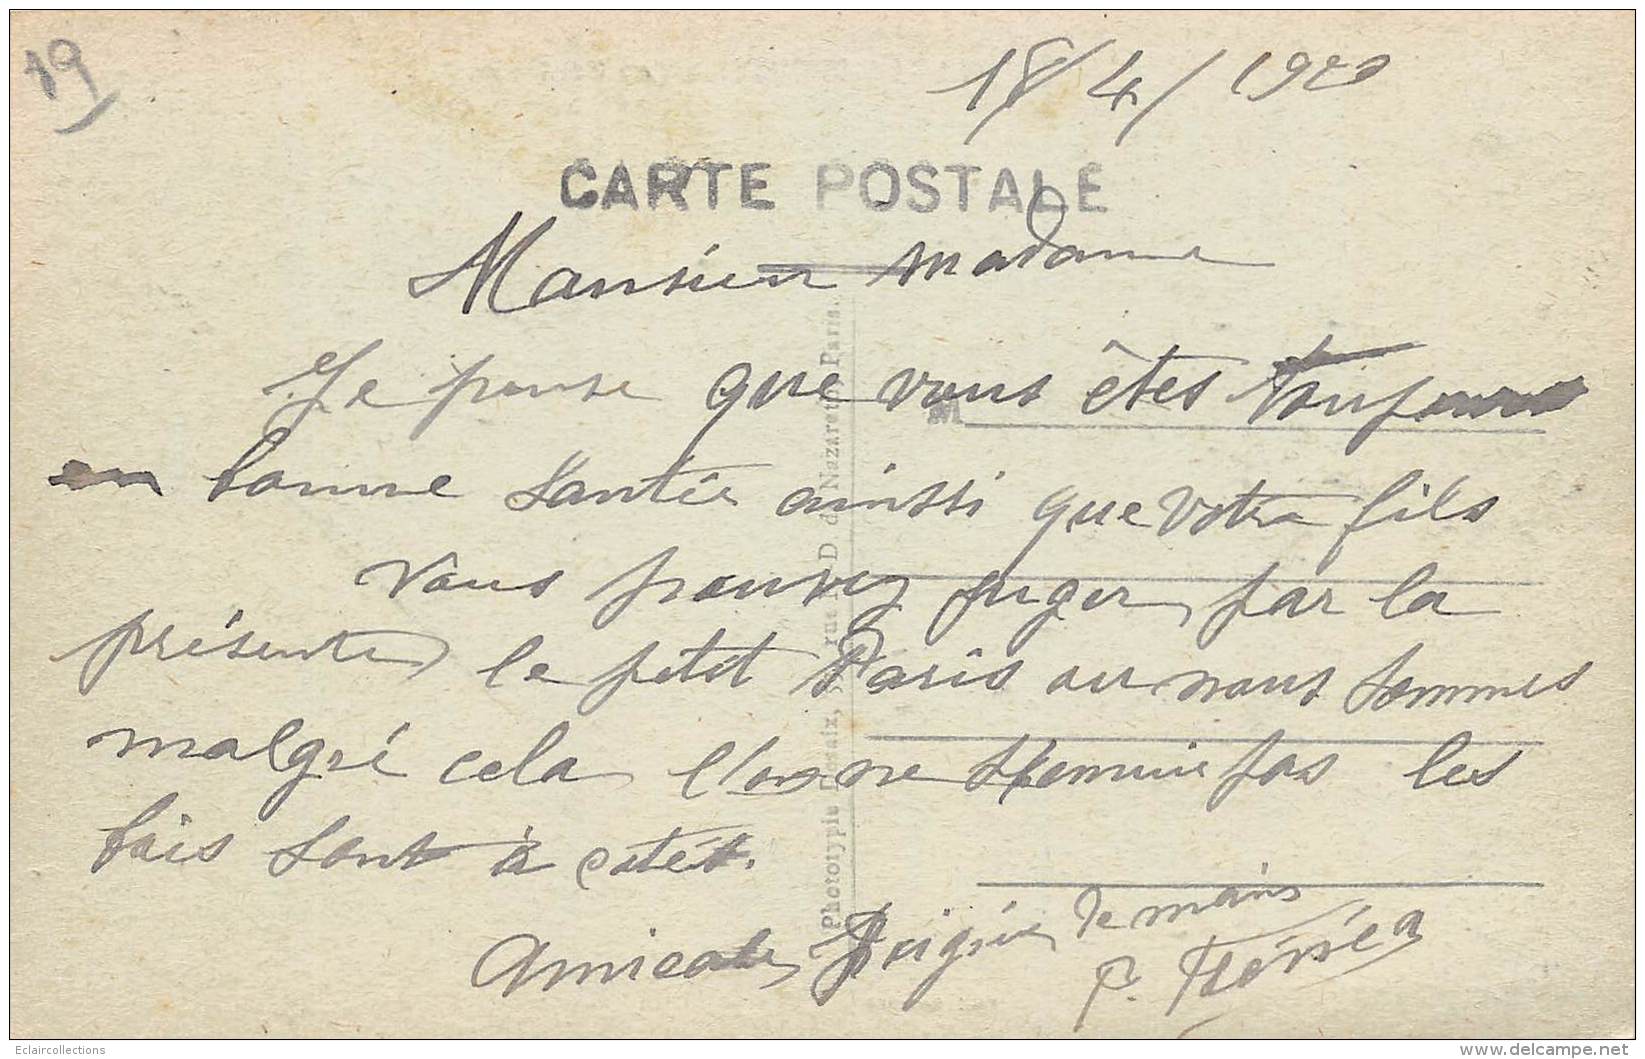 19
18/4/1920
CARTE POSTALE
Monsieur madame
Je pense que vous êtes toujours
M
en bonne santée ainssi que votre fils
vous pouvez juger par la
présente le petit Paris ou nous sommes
malgré cela l'on ne pas les
bois sont à cotét.
Amicale Poignée de mains
P.
Phototypie Desaix, rue N. D. de Nazareth, Paris.
Eclaircollections
www.delcampe.net